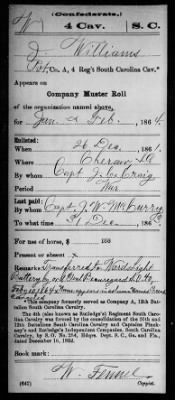 (Confederate.)
W 4 Cav. S. C.
J. Williams
Pvt, Co. A, 4 Reg't South Carolina Cav.*
Appears on
Company Muster Roll
of the organization named above,
for Jan & Feb, 1864
Enlisted:
When 26 Dec, 1861
Where Cheraw, SC
By whom Capt J. C. Craig
Period War
Last paid:
By whom Capt J. W. McCurry
To what time 31 Dec, 186
For use of horse, $ 100
Present or absent
Remarks: Transferred to Wards Light
Battery by order Genl Beauregard
Feby 10 1864
*This company formerly served as Company A, 12th Battalion South Carolina Cavalry.
The 4th (also known as Rutledge's) Regiment South Carolina Cavalry was formed by the consolidation of the 10th and 12th Battalions South Carolina Cavalry and Captains Pinckney's and Rutledge's Independent Companies, South Carolina Cavalry, by S. O. No. 254, Hdqrs. Dept. S. C., Ga. and Fla., dated December 16, 1862.
Book mark:
W. Fennel
(642) Copyist.